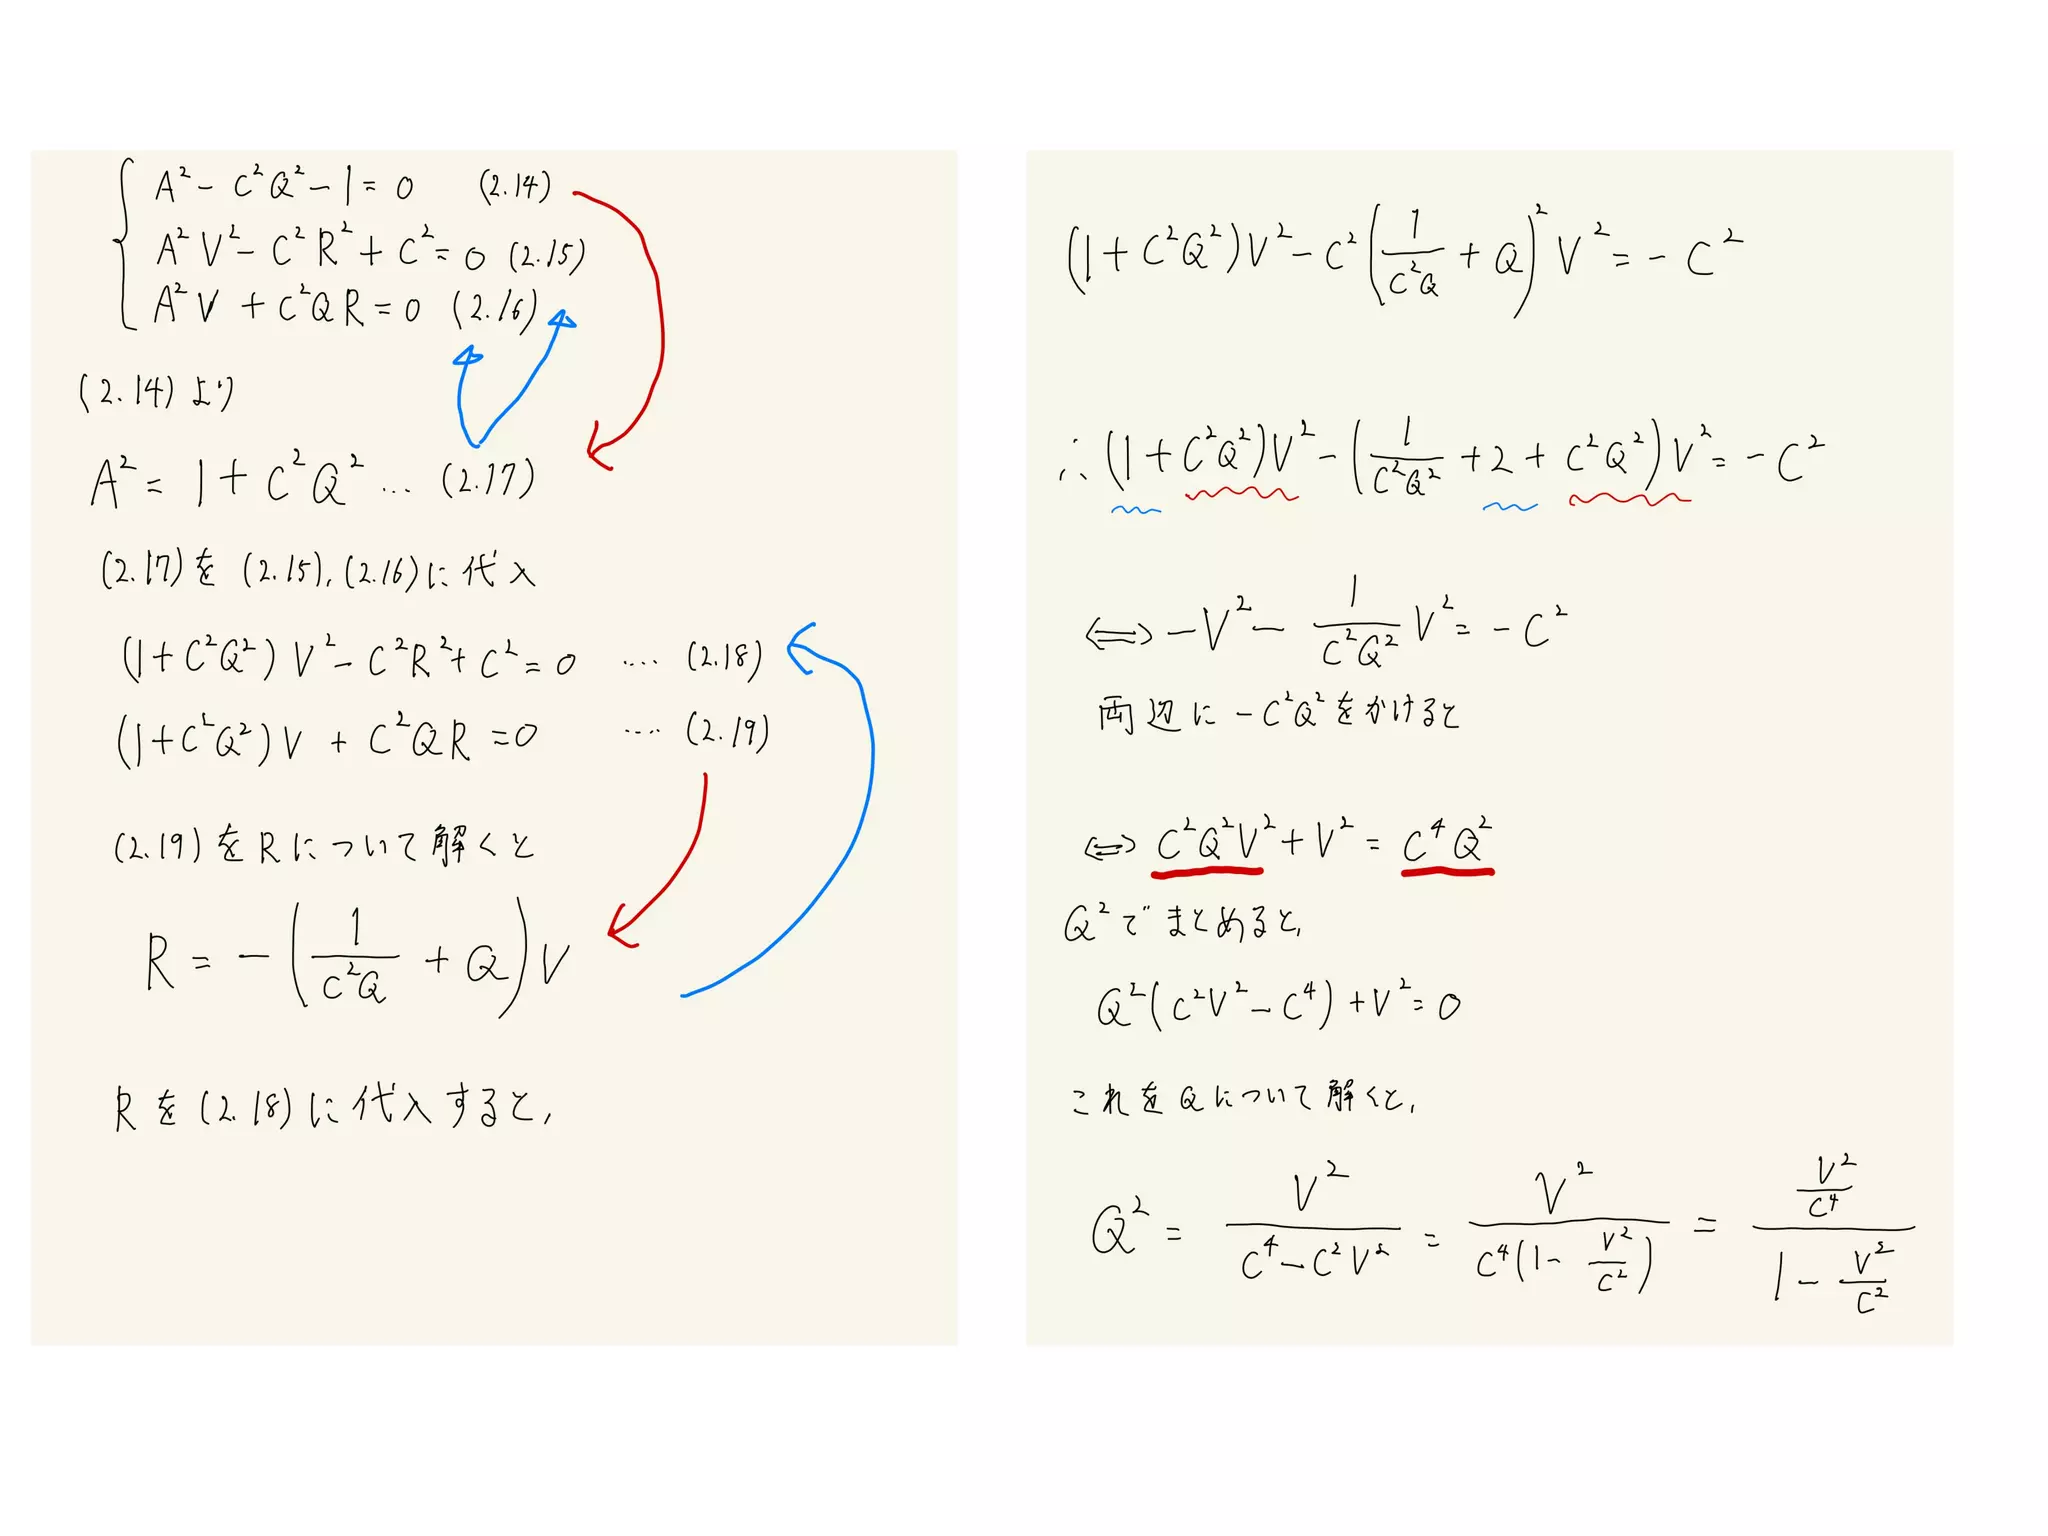 A² - C²Q² - 1 = 0 (2.14)
A²V² - C²R² + C² = 0 (2.15)
A²V + C²QR = 0 (2.16)
(2.14)より
A² = 1 + C²Q² … (2.17)
(2.17)を(2.15),(2.16)に代入
(1+C²Q²)V² - C²R² + C² = 0 …. (2.18)
(1+C²Q²)V + C²QR = 0 …. (2.19)
(2.19)をRについて解くと
R = -(1/(C²Q) + Q)V
Rを(2.18)に代入すると,
(1+C²Q²)V² - C²(1/(C²Q) + Q)²V² = -C²
∴(1+C²Q²)V² - (1/(C²Q²) + 2 + C²Q²)V² = -C²
⇔ -V² - 1/(C²Q²) V² = -C²
両辺に-C²Q²をかけると
⇔ C²Q²V² + V² = C⁴Q²
Q²でまとめると,
Q²(C²V² - C⁴) + V² = 0
これをQについて解くと,
Q² = V²/(C⁴ - C²V²) = V²/(C⁴(1 - V²/C²)) = (V²/C⁴)/(1 - V²/C²)